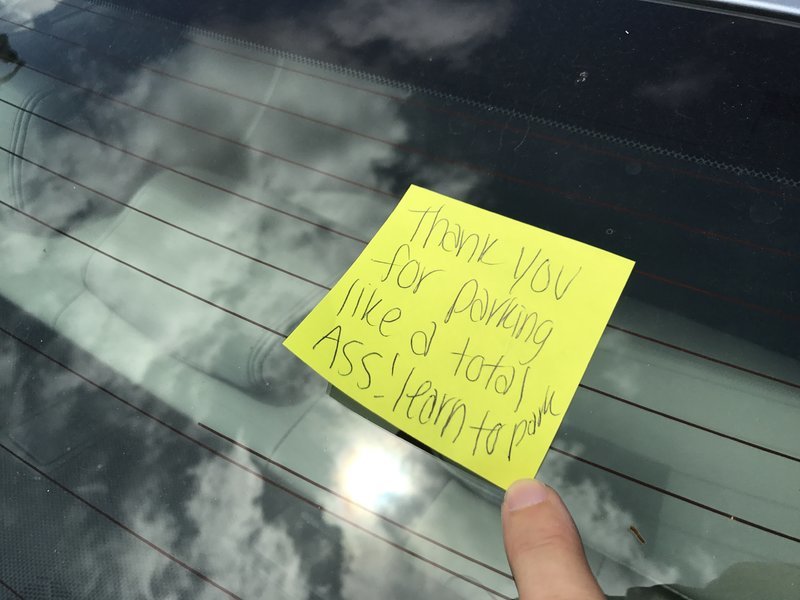 Thank you
for parking
like a total
Ass! learn to park